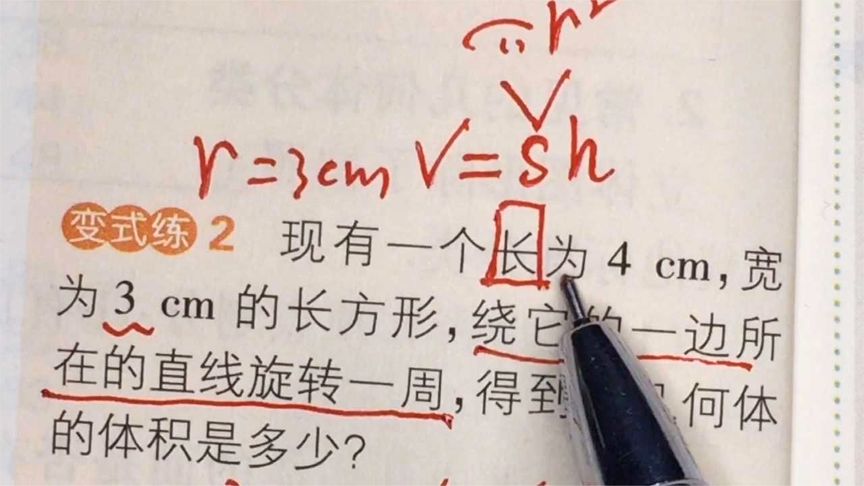 πr²
r=3cm V=Sh
变式练2 现有一个长为 4 cm,宽
为 3 cm 的长方形,绕它的一边所
在的直线旋转一周,得到 何体
的体积是多少?